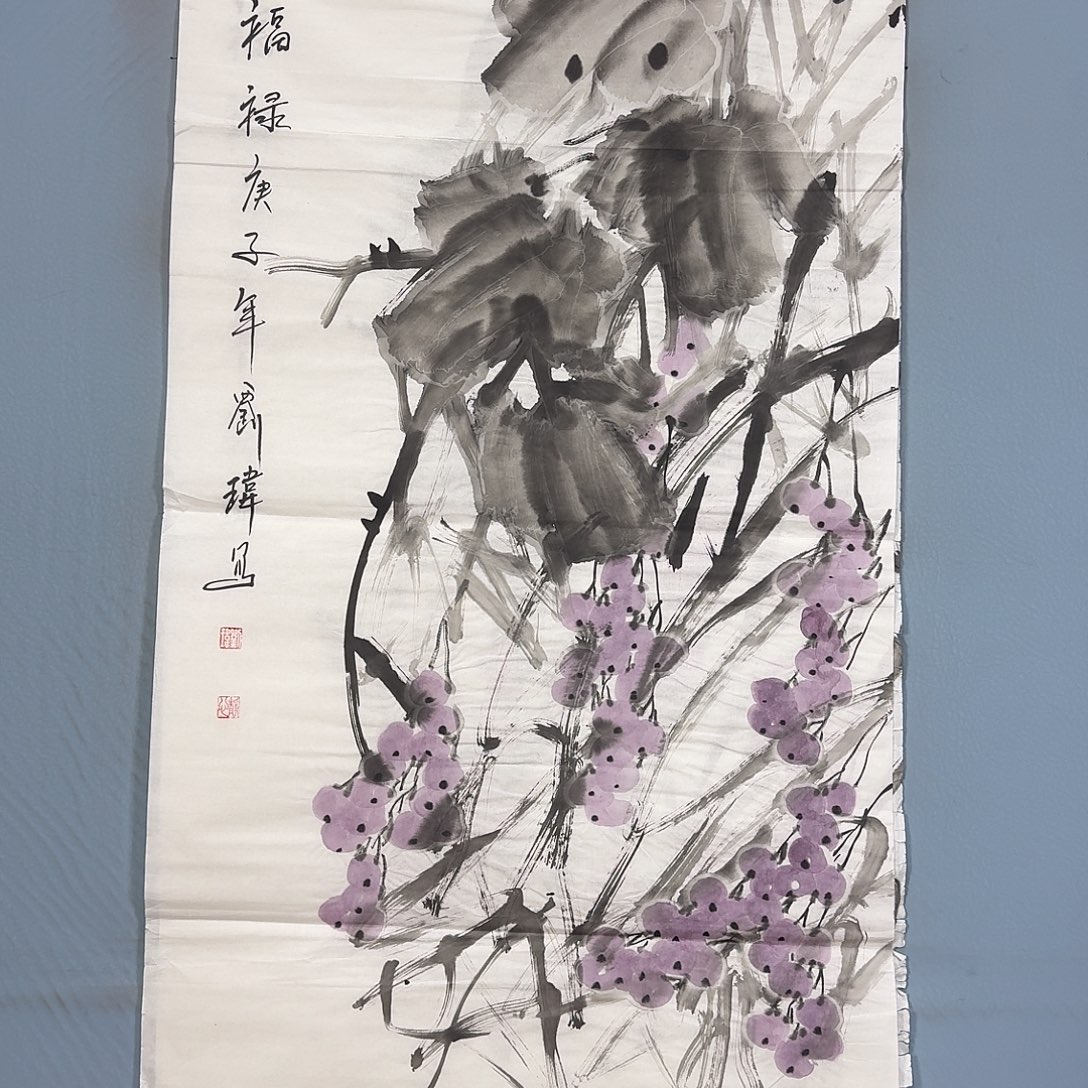 福禄庚子年劉瑋写